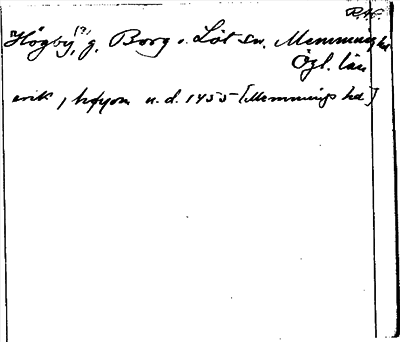 R.A.
Högby(?), g. Borg o. Löt sn, Memmings hd
Ögl. län
erik, høyom u. d. 1455 [Memmings hd]